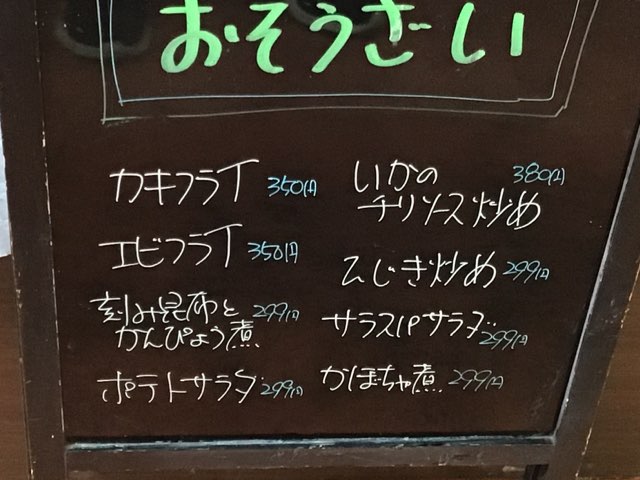 おそうざい
カキフライ 350円
エビフライ 350円
刻み昆布と
かんぴょう煮 299円
ポテトサラダ 299円
いかの 380円
チリソース炒め
ひじき炒め 299円
サラスパサラダ 299円
かぼちゃ煮 299円